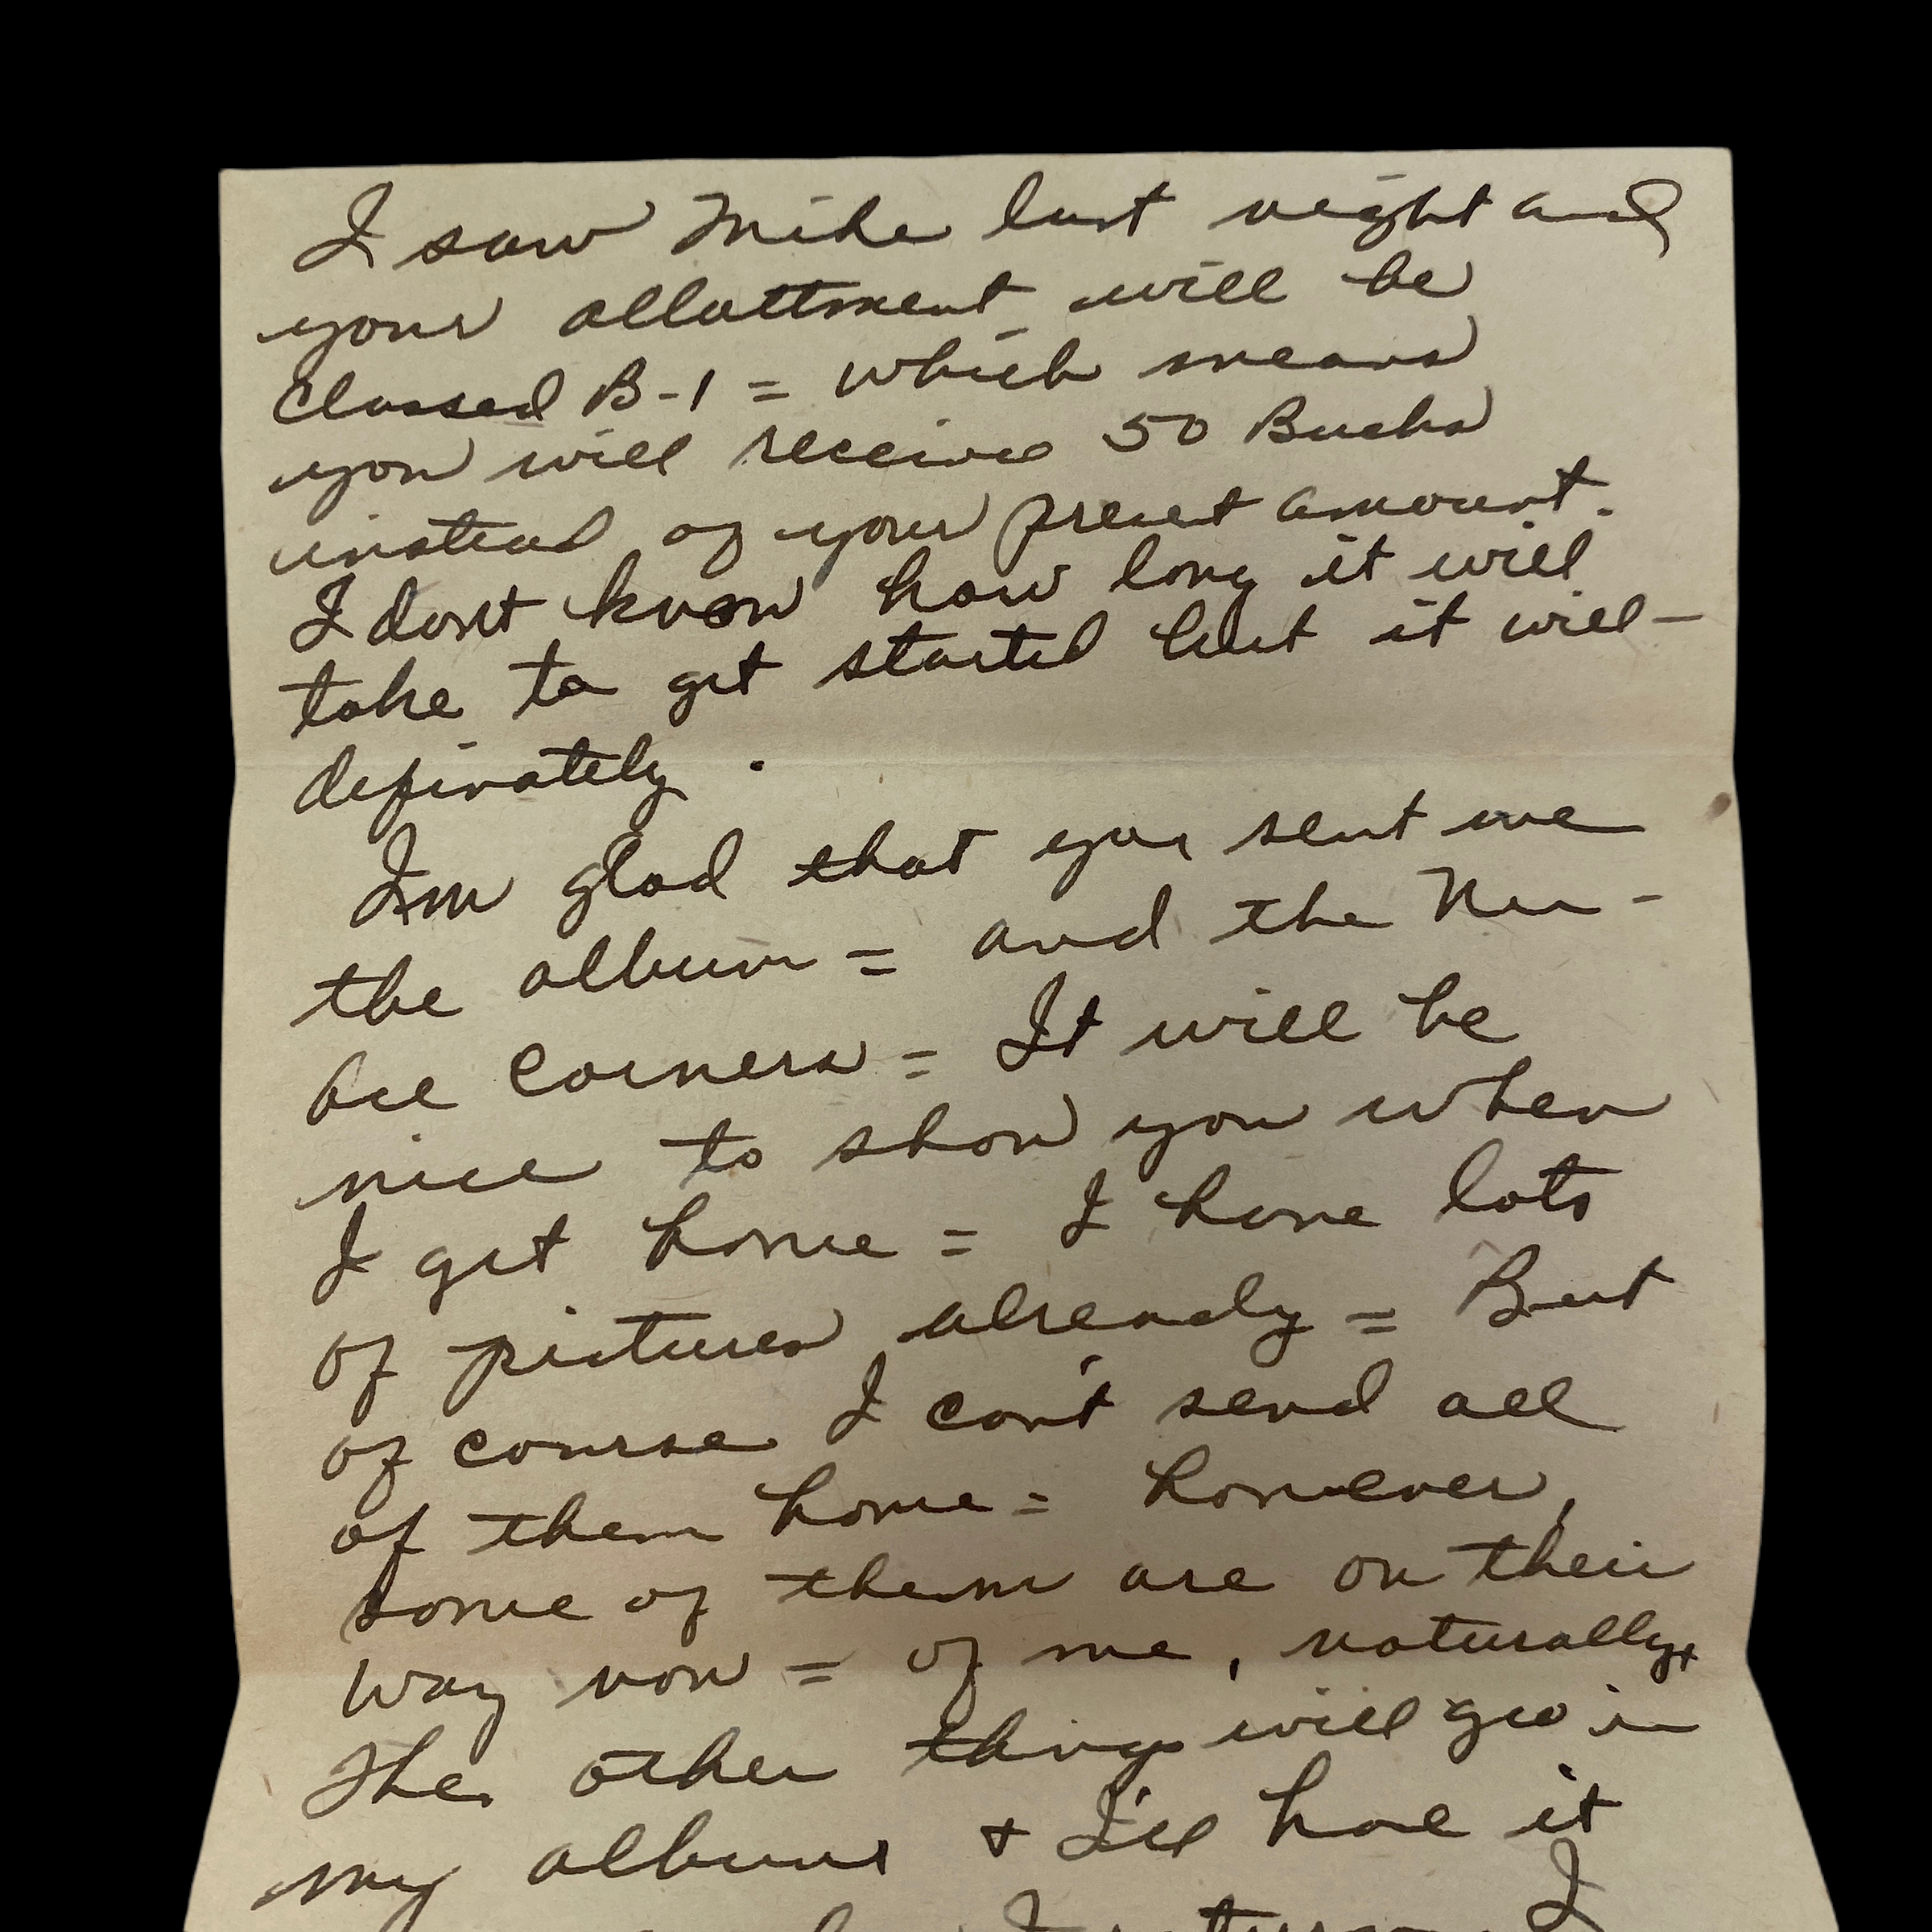 I saw Mike last night and
your allottment will be
Classed B-1 = which means
you will receive 50 Bucks
instead of your preset amount.
I don't know how long it will
take to get started but it will -
definately.
I'm glad that you sent me
the album = and the Nu -
ace corners = It will be
nice to show you when
I get home = I have lots
of pictures already = But
of course I can't send all
of them home = however,
some of them are on their
way now = of me, naturally.
The other things will go in
my album & I'll have it
I